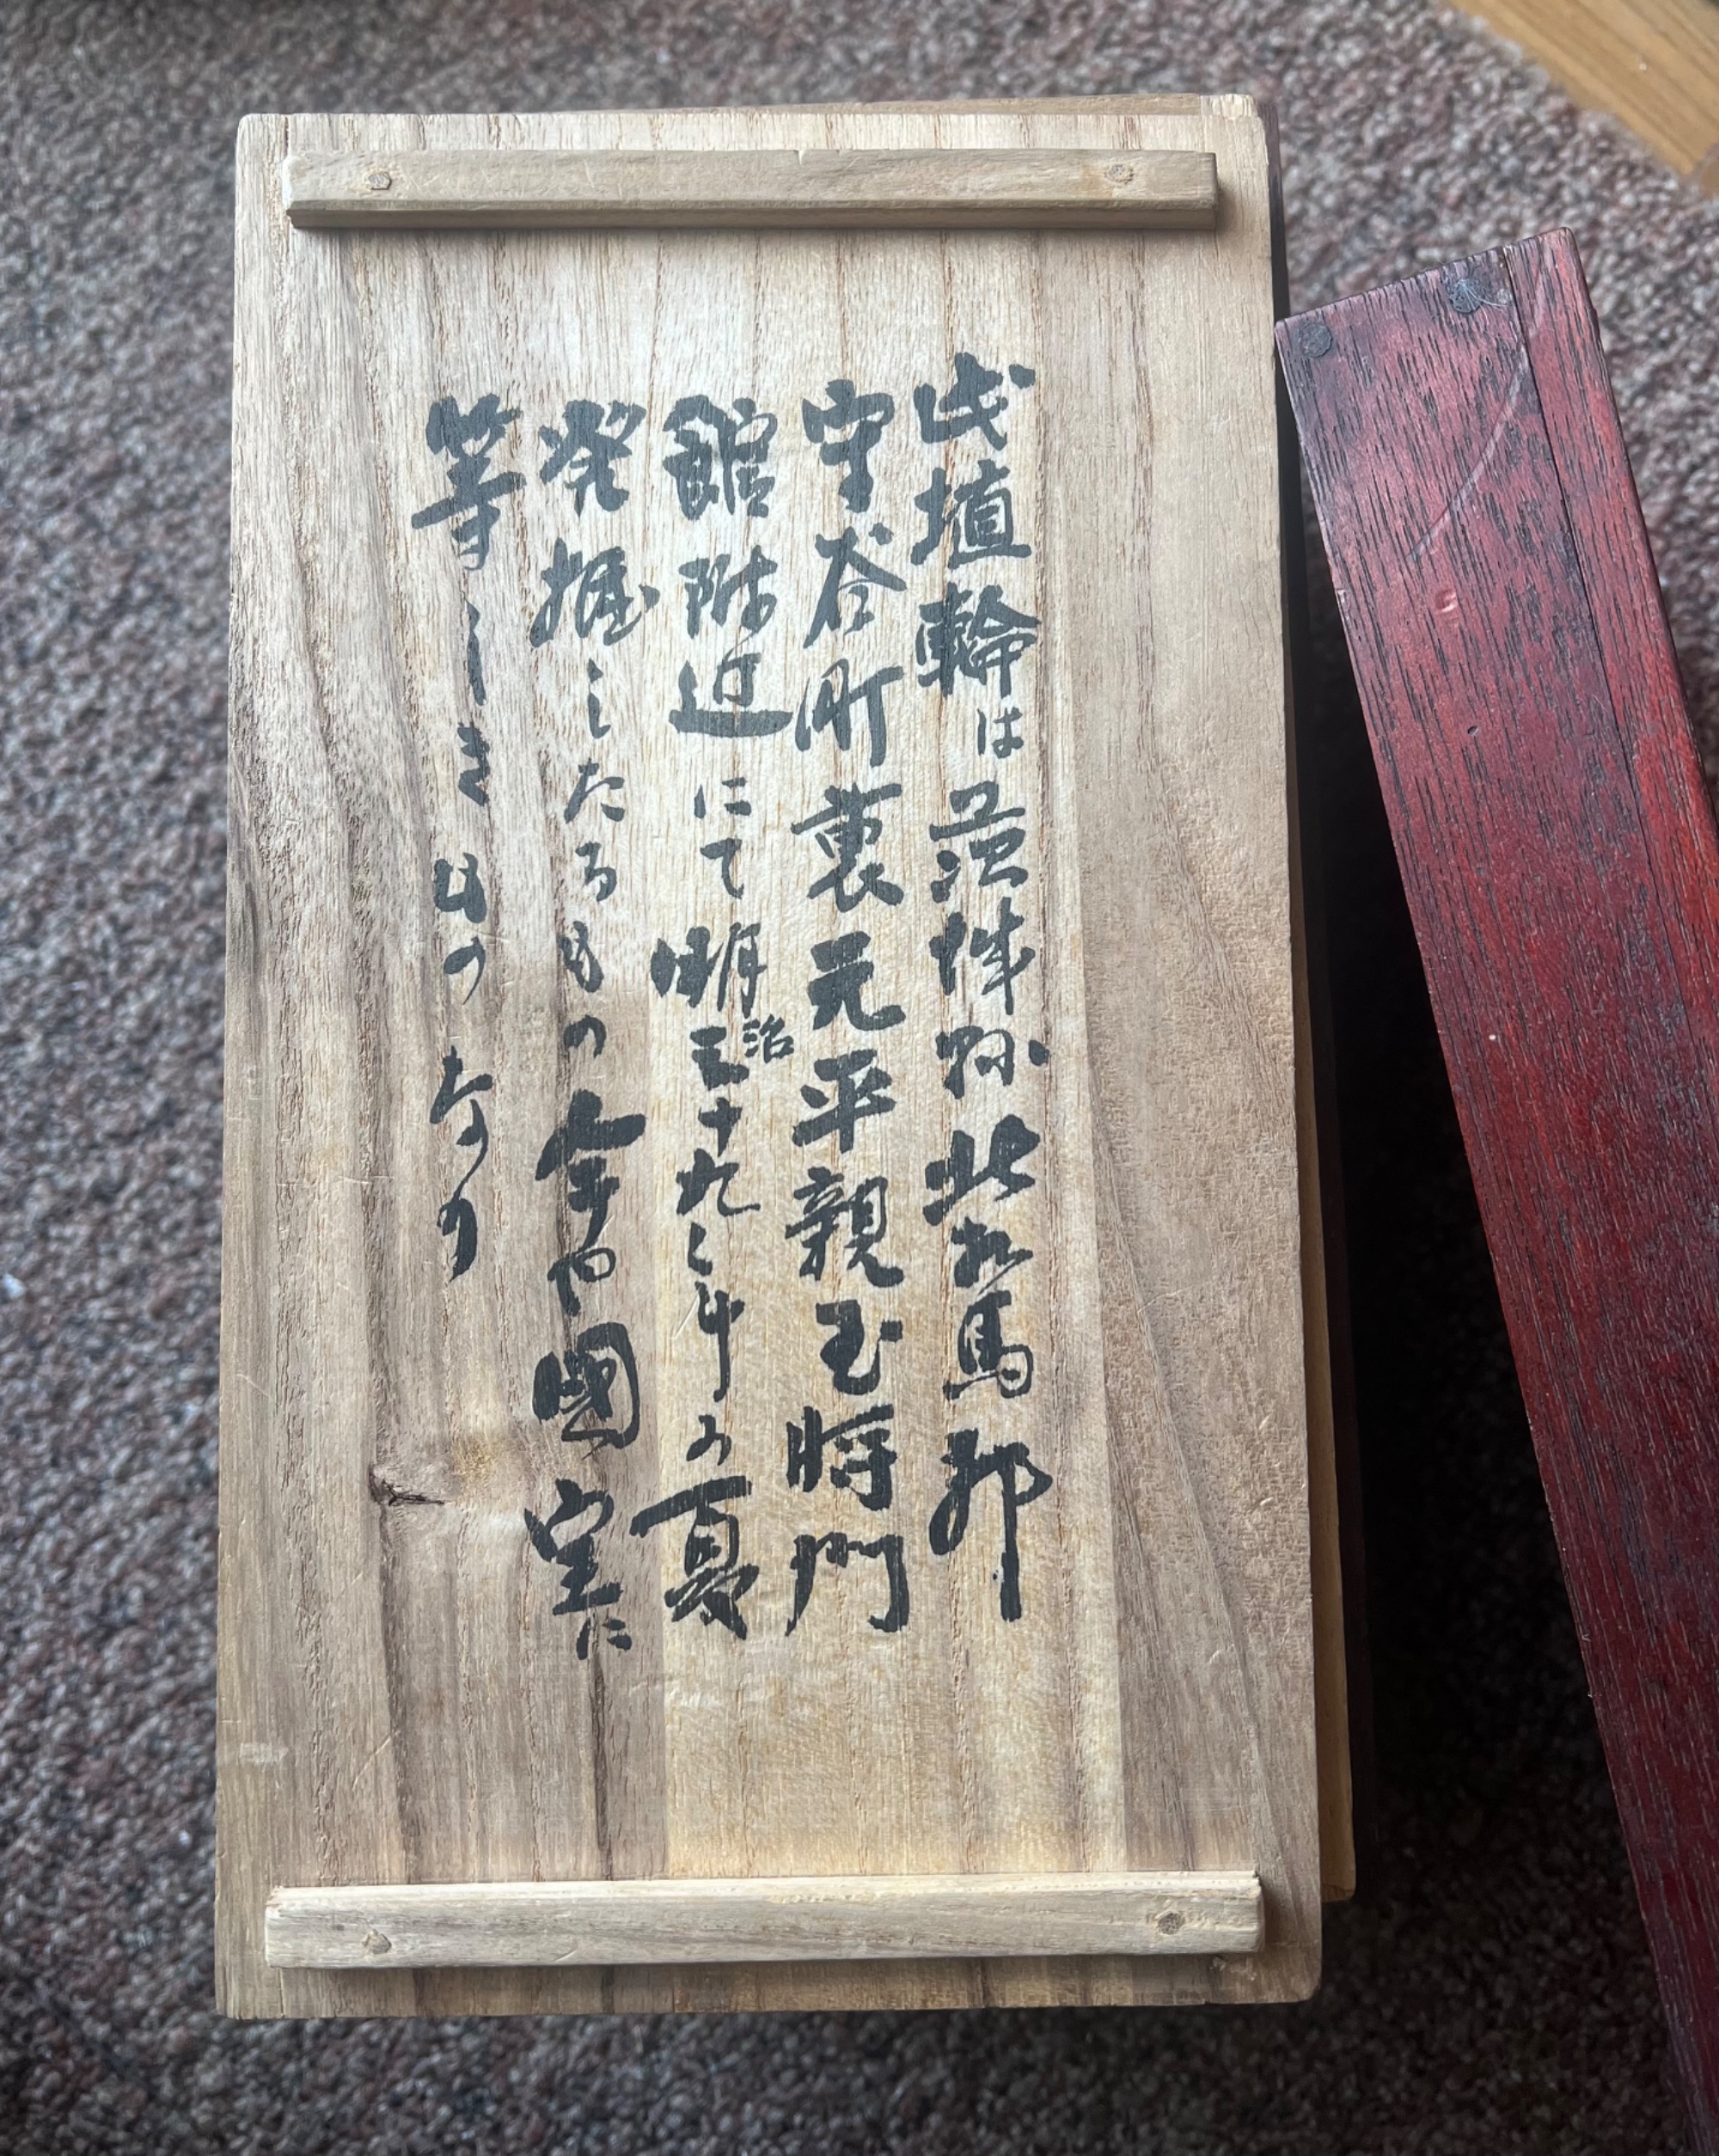 此埴輪は茨城縣北相馬郡
守谷町裏元平親王将門
館附近にて明治三十九年の夏
発掘したるもの今や國宝に
等しきものなり